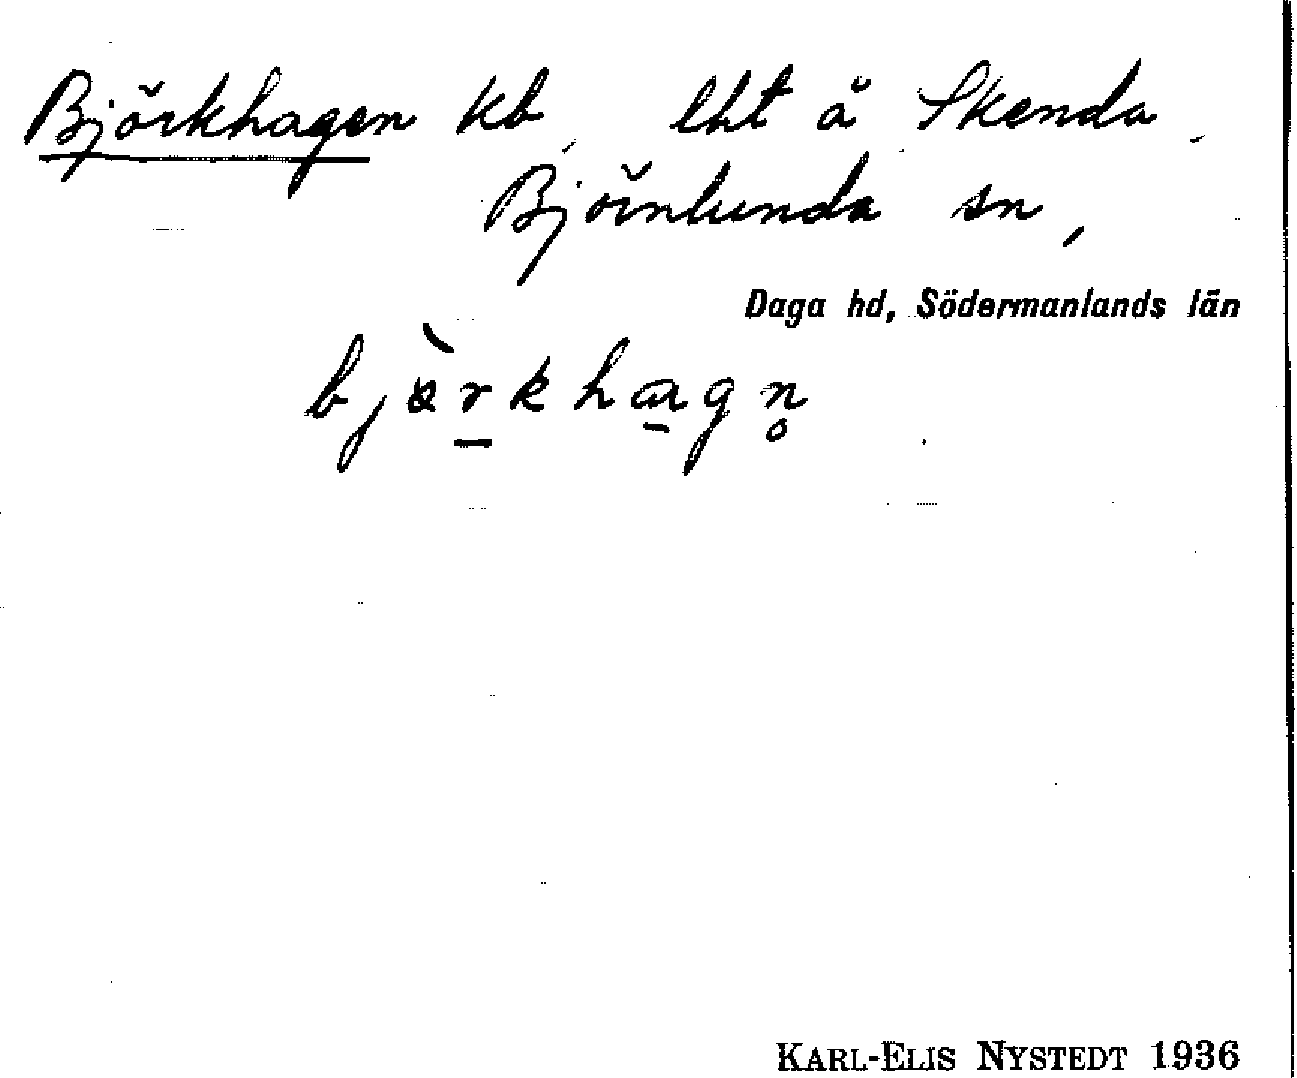 Björkhagen kb, lht å Skenda,
Björnlunda sn,
Daga hd, Södermanlands län
bjö̀r̲kha̲gn̥
KARL-ELIS NYSTEDT 1936